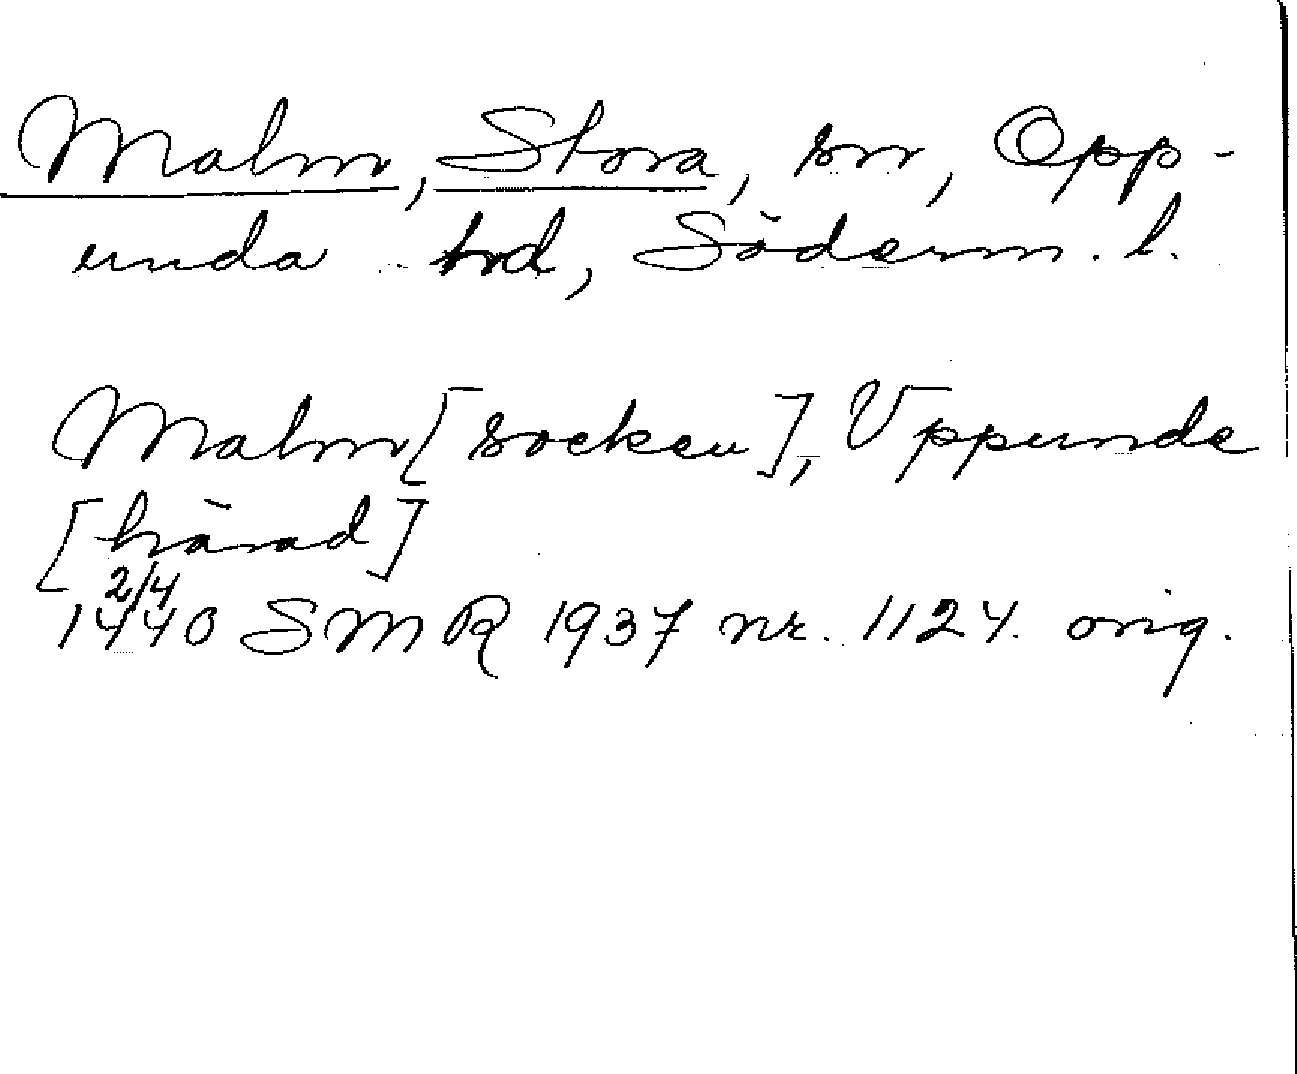 Malm, Stora, sn, Opp-
unda hd, Söderm. l.
Malm [socken], Vppunde
[härad]
2/4
1440 SMR 1937 nr. 1124. orig.